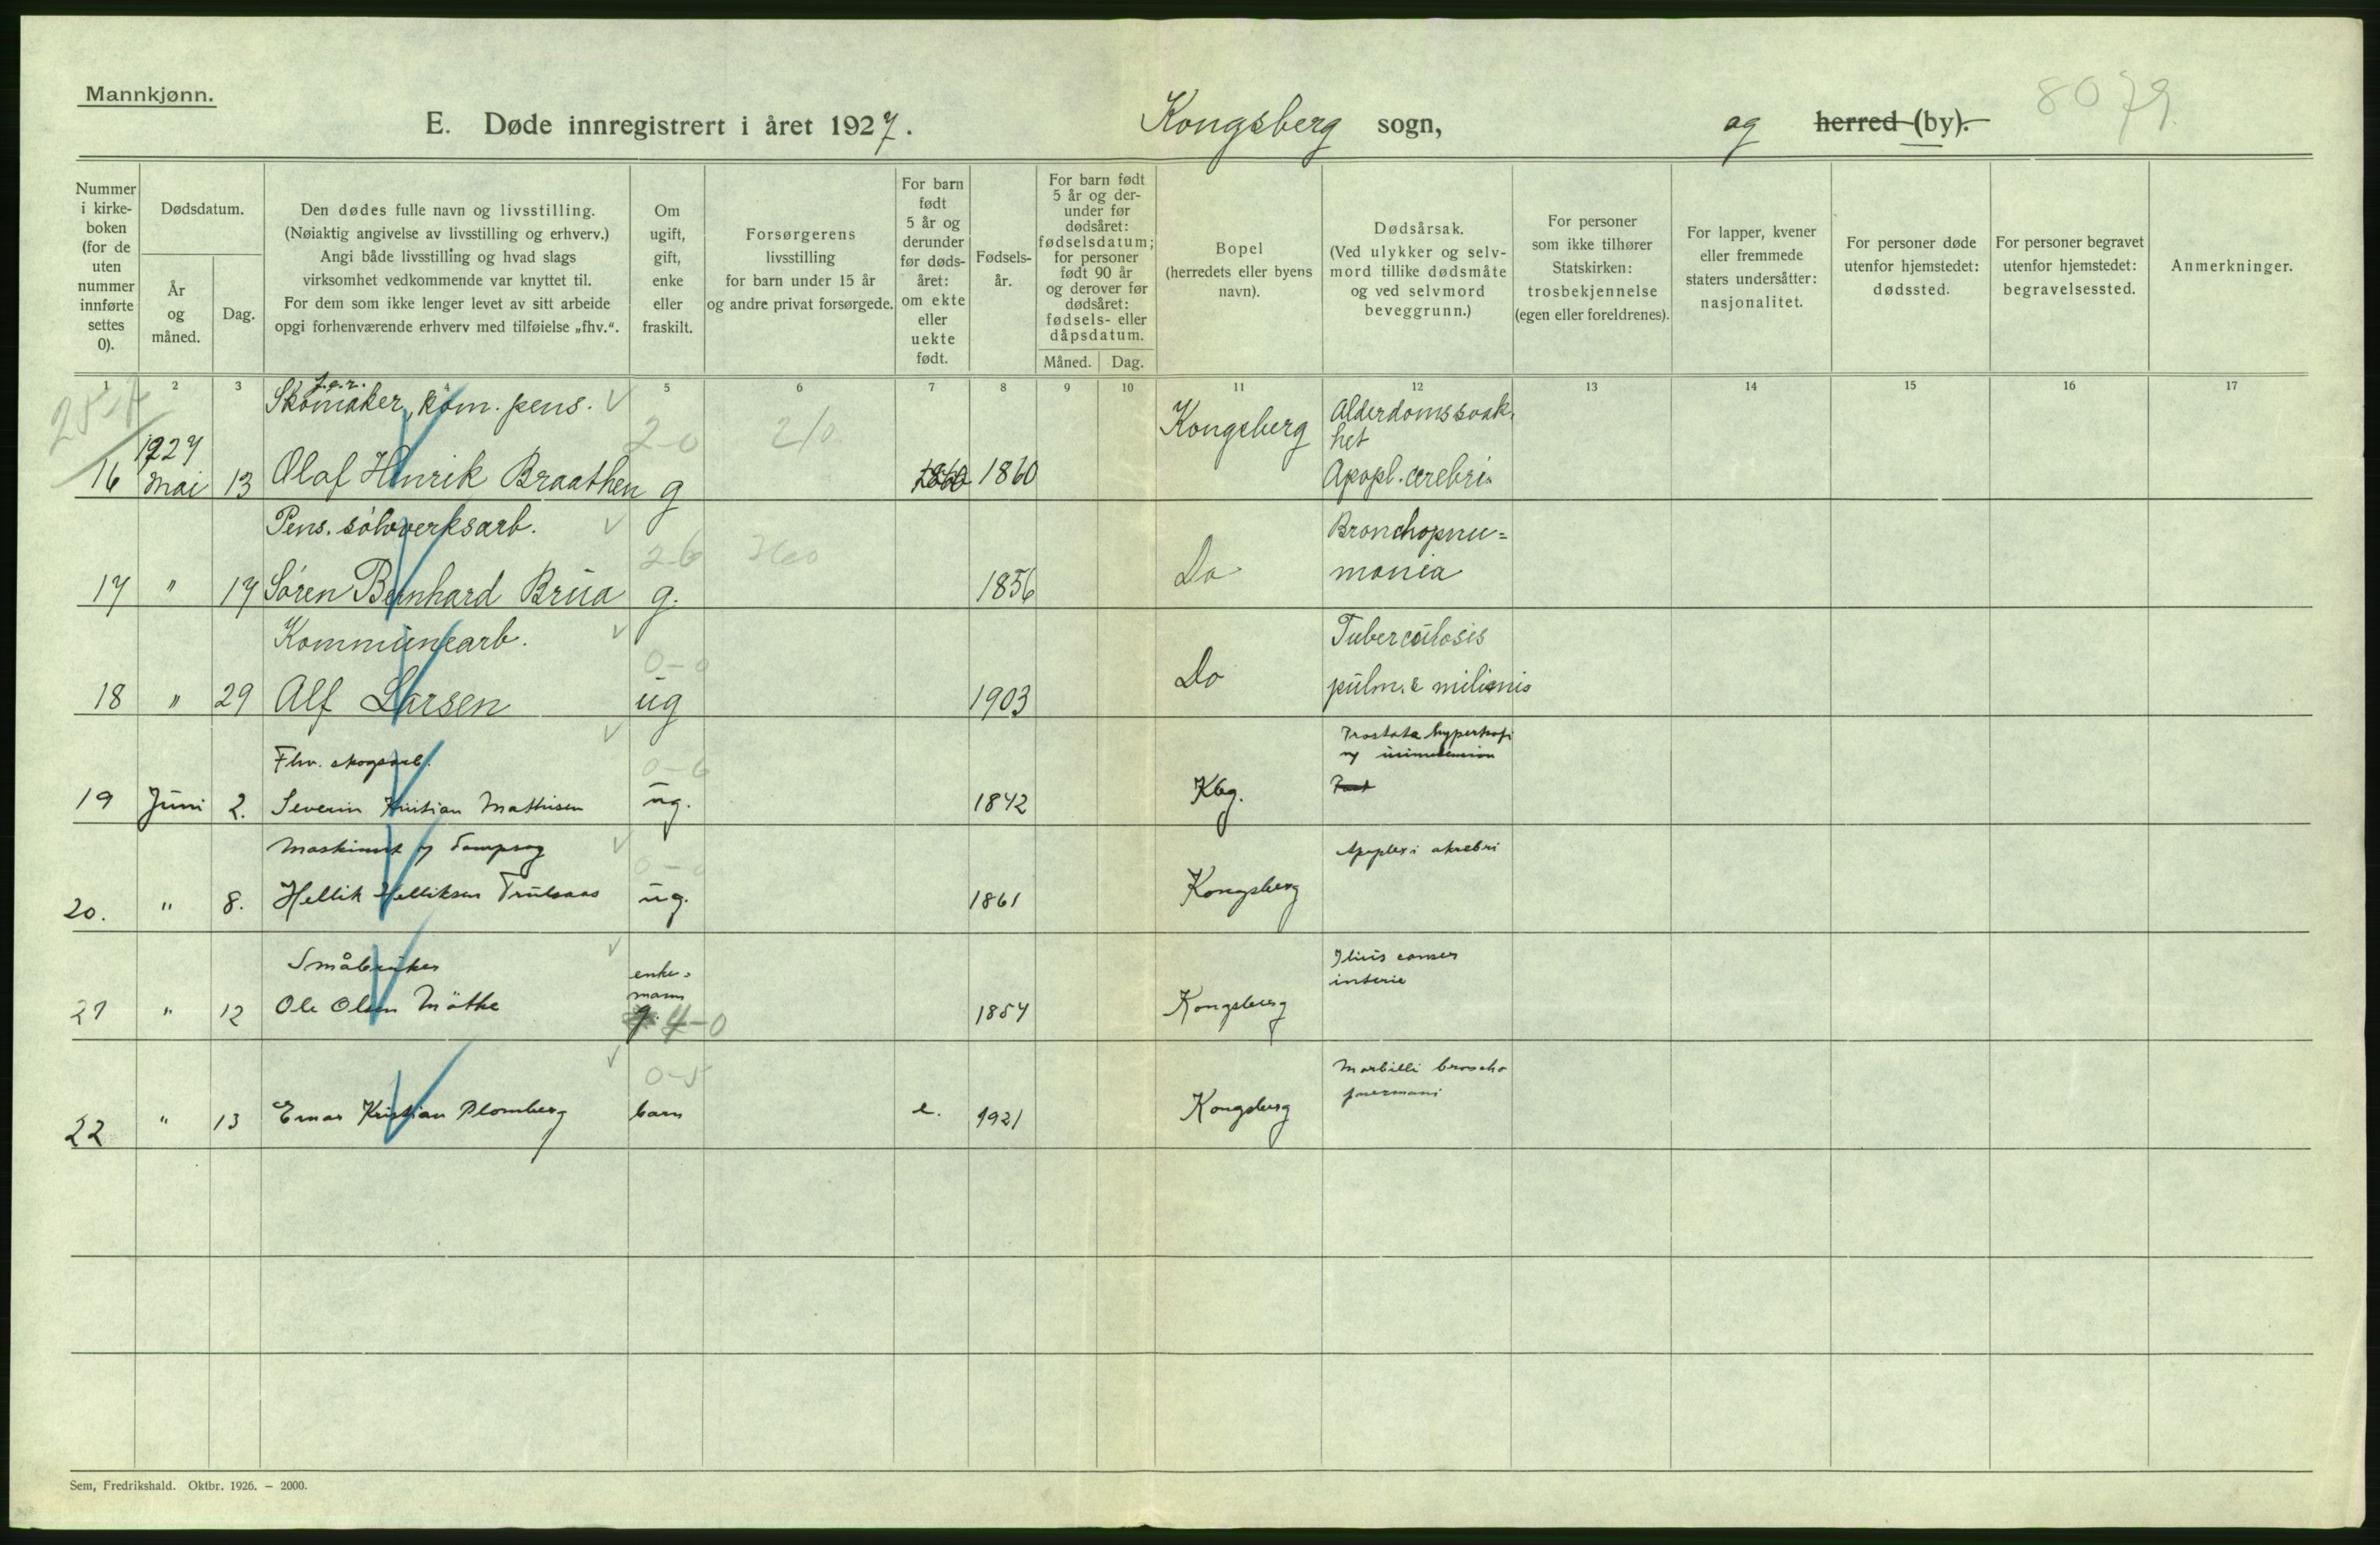 Mannkjønn.
E. Døde innregistrert i året 1927. Kongsberg sogn, og herred (by).
8079
Nummer i kirke-boken (for de uten nummer innførte settes 0).
Dødsdatum.
År og måned.
Dag.
Den dødes fulle navn og livsstilling.
(Nøiaktig angivelse av livsstilling og erhverv.)
Angi både livsstilling og hvad slags
virksomhet vedkommende var knyttet til.
For dem som ikke lenger levet av sitt arbeide
opgi forhenværende erhverv med tilføielse „fhv.“.
Om ugift, gift, enke eller fraskilt.
Forsørgerens
livsstilling
for barn under 15 år
og andre privat forsørgede.
For barn født 5 år og derunder før døds-året: om ekte eller uekte født.
Fødsels-år.
For barn født 5 år og der-under før dødsåret: fødselsdatum; for personer født 90 år og derover før dødsåret: fødsels- eller dåpsdatum.
Måned.
Dag.
Bopel
(herredets eller byens
navn).
Dødsårsak.
(Ved ulykker og selv-
mord tillike dødsmåte
og ved selvmord
beveggrunn.)
For personer
som ikke tilhører
Statskirken:
trosbekjennelse
(egen eller foreldrenes).
For lapper, kvener
eller fremmede
staters undersåtter:
nasjonalitet.
For personer døde
utenfor hjemstedet:
dødssted.
For personer begravet
utenfor hjemstedet:
begravelsessted.
Anmerkninger.
1 2 3 4 5 6 7 8 9 10 11 12 13 14 15 16 17
Skomaker, kom. pens.
Kongsberg Alderdomssvak,
het
1927 2-0 210
16 Mai 13 Olaf Henrik Braathen g 1860 1860 Apopl. cerebri.
Pens. sølvverksarb. Bronchopnu=
2-6
17 " 17 Søren Bernhard Brua g. 1856 Do monia
Kommunearb. Tuberculosis
0-0
18 " 29 Alf Larsen ug 1903 Do pulm. &
Prostata
Fhv. skogsarb.
0-6
19 Juni 2. Severin Kristian Mathisen ug. 1842 Kbg.
Maskinist Apoplexi
0-0
20. " 8. Hellik Helliksen Trulsaas ug. 1861 Kongsberg
Småbruker enke=
mann
21 " 12 Ole Olsen Møthe g. 4-0 1854 Kongsberg
0-5 Morbilli broncho
22 " 13 Einar Kristian Plomberg barn e. 1921 Kongsberg
Sem, Fredrikshald. Oktbr. 1926. – 2000.